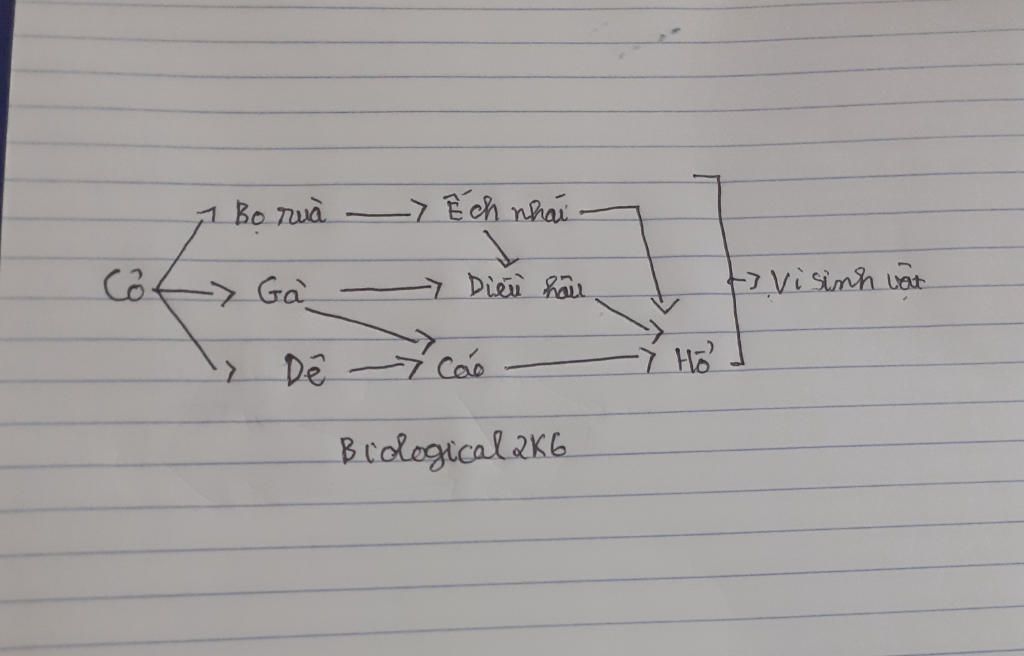 Bọ rùa Ếch nhái
Cỏ Gà Diều hâu Vi sinh vật
Dê Cáo Hổ
Biological 2K6